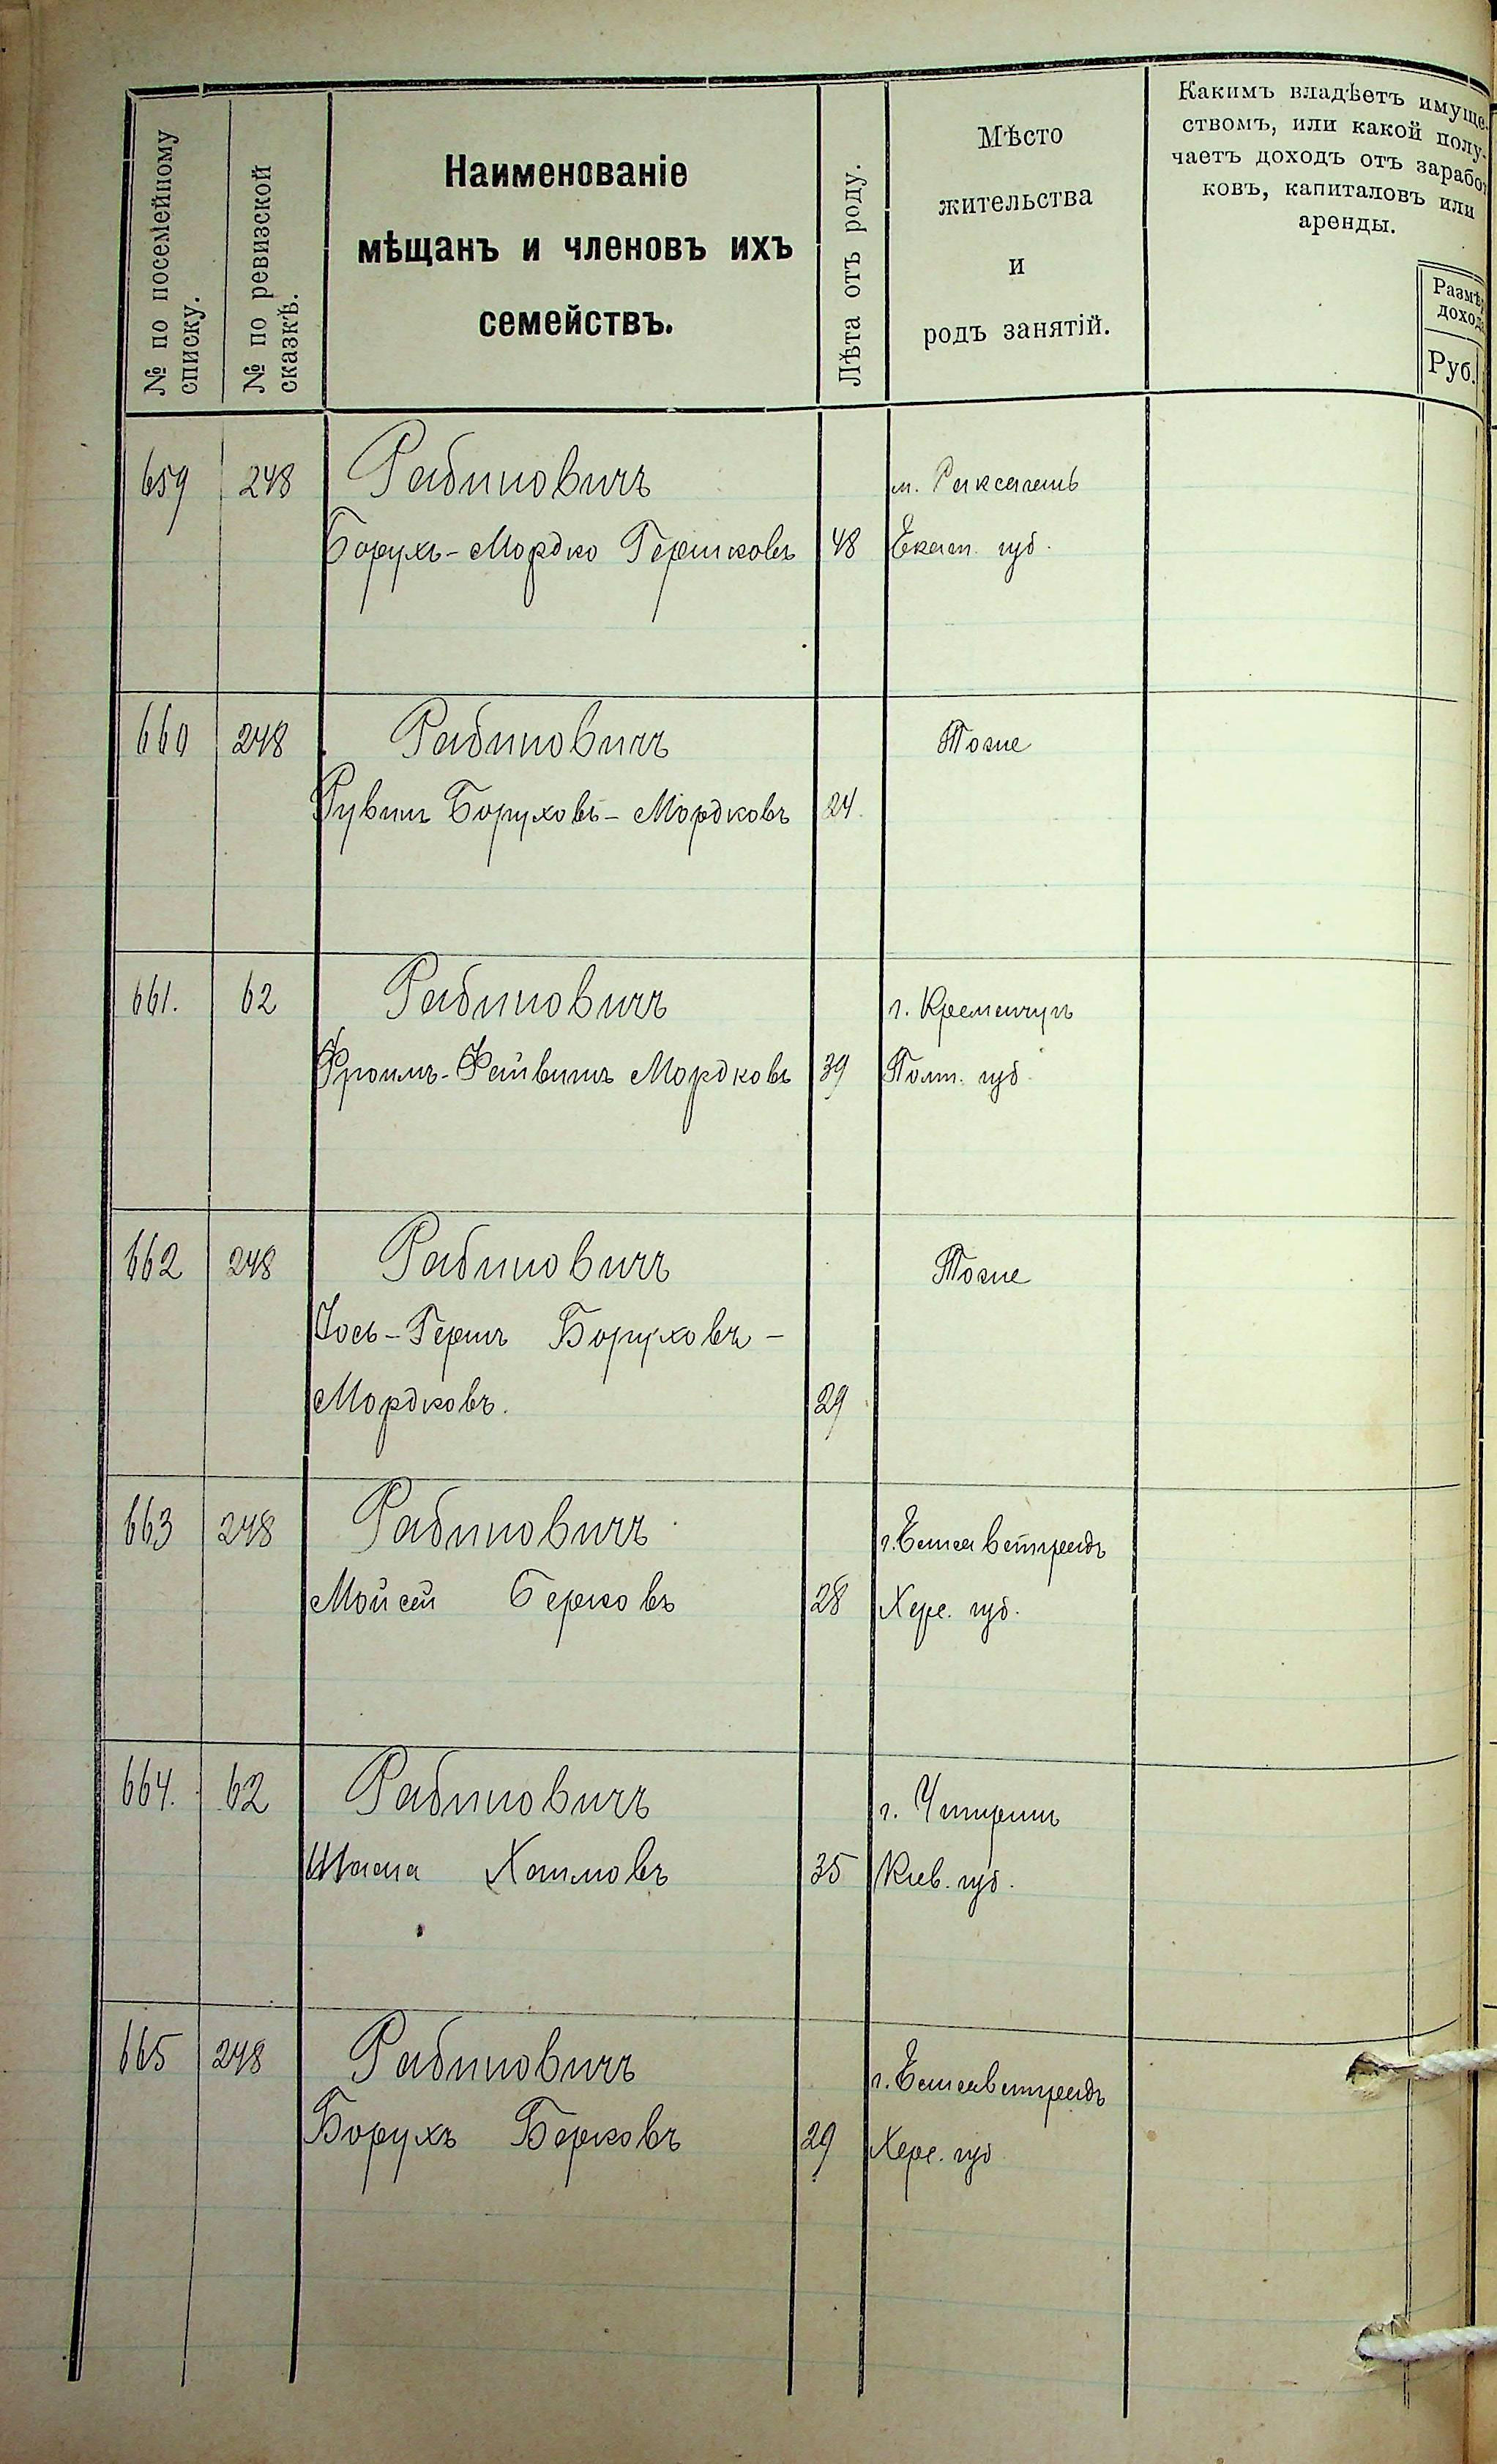 № по посемейному
списку.
№ по ревизской
сказкѣ.
Наименованіе
мѣщанъ и членовъ ихъ
семействъ.
Лѣта отъ роду.
Мѣсто
жительства
и
родъ занятій.
Какимъ владѣетъ имуще-
ствомъ, или какой полу-
чаетъ доходъ отъ заработ
ковъ, капиталовъ или
аренды.
Размѣр
дохода
Руб.
659 248 Рабиновичъ м.
Борухъ-Мордко Гершковъ 48 Екат. губ.
660 248 Рабиновичъ Тоже
Рувинъ Боруховъ-Мордковъ 24.
661. 62 Рабиновичъ г. Кременчугъ
Фроимъ-Файвишъ Мордковъ 39 Полт. губ.
662 248 Рабиновичъ Тоже
Іось-Гершъ Боруховъ-
Мордковъ. 29
663 248 Рабиновичъ г. Елисаветградъ
Мойсей Берковъ 28 Хер. губ.
664. 62 Рабиновичъ г. Чигирин
Хаимовъ 35 Кіев. губ.
665 248 Рабиновичъ г. Елисаветградъ
Борухъ Берковъ 29 Хер. губ